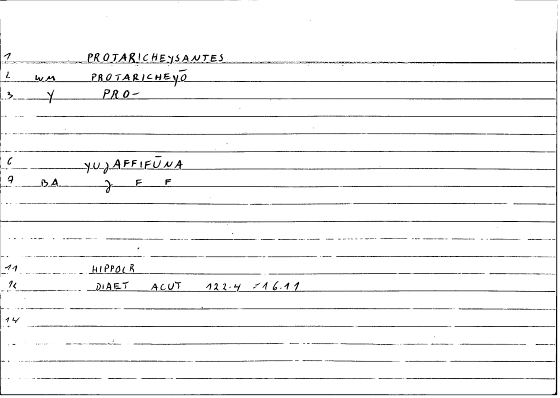 1 PROTARICHEYSANTES
2 WM PROTARICHEYŌ
3 Y PRO-
6 YUǮAFFIFŪNA
9 BA Ȝ F F
11 HIPPOCR
12 DIAET ACUT 122.4 =16.11
14